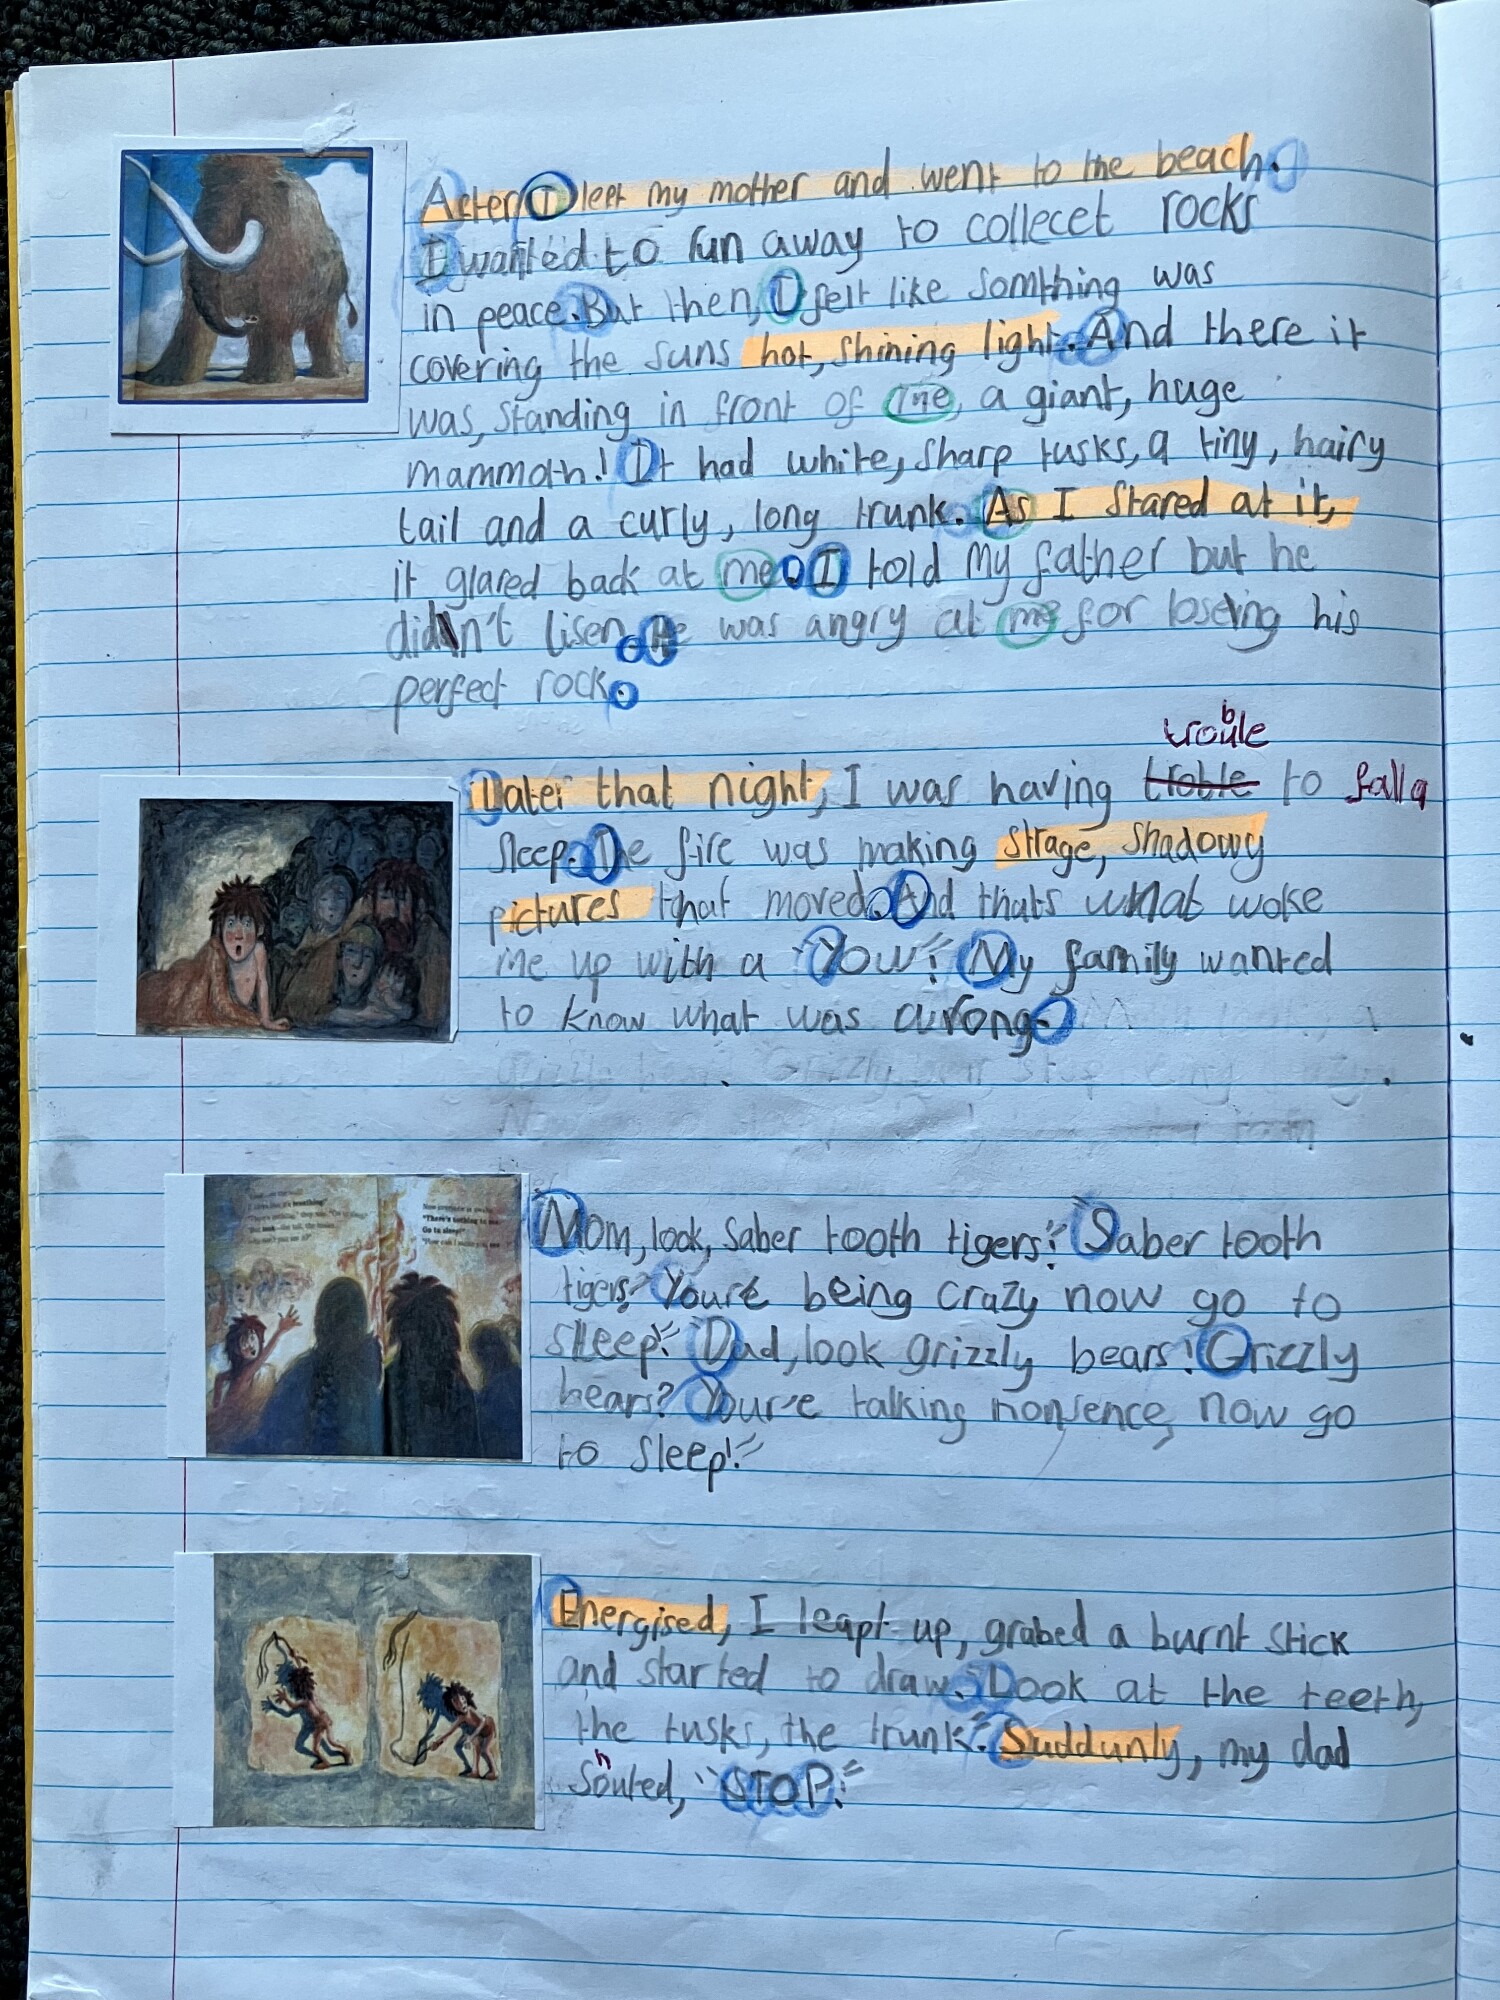 After I left my mother and went to the beach.
I wanted to run away to collecet rocks
in peace. But then, I felt like somthing was
covering the suns hot, shining light. And there it
was, standing in front of me, a giant, huge
mammoth! It had white, sharp tusks, a tiny, hairy
tail and a curly, long trunk. As I stared at it,
it glared back at me. I told my father but he
didn't lisen. He was angry at me for loseing his
perfect rock.
trouble
Later that night, I was having troble to fall a
sleep. The fire was making strage, shadowy
pictures that moved. And thats what woke
me up with a "Yow"! My family wanted
to know what was wrong.
"There's nothing to see.
Go to sleep!"
"Mom, look, saber tooth tigers!" Saber tooth
tigers? Your'e being crazy now go to
sleep!" "Dad, look grizzly bears! Grizzly
bears? Your'e talking nonsence, now go
to sleep!"
Energised, I leapt up, grabed a burnt stick
and started to draw. "Look at the teeth,
the tusks, the trunk." Suddunly, my dad
shouted, "STOP!"